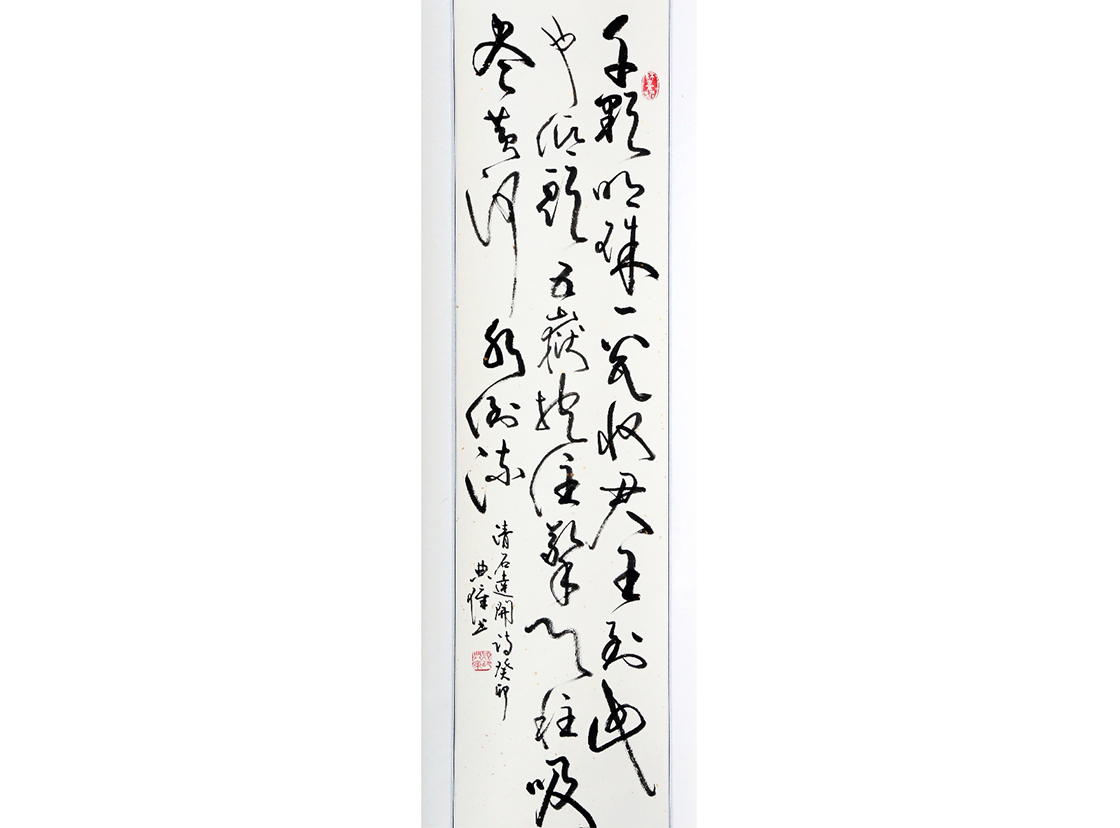 千顆明珠一瓮收君王到此
也低頭五嶽抱住擎天柱吸
尽黄河水倒流
清石達開詩癸卯
典